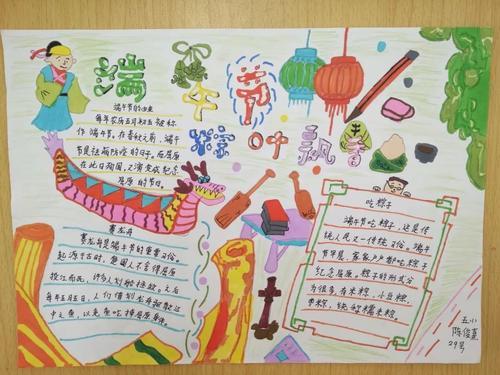 端午节
粽叶飘香
端午节的由来
每年农历五月初五被称
作端午节。在春秋之前，端午
节是祛病防疫的日子。后屈原
在此日殉国，又演变成纪念
屈原的节日。
赛龙舟
赛龙舟是端午节的重要习俗。
起源于古时，楚国人不舍得屈原
投江而死，许多人划船拯救。之后
每年五月五日，人们借划龙舟驱散江
中之鱼，以免鱼吃掉屈原身体。
吃粽子
端午节吃粽子，这是传
统人民又一传统习俗。端午
节早晨，家家户户都吃粽子
纪念屈原。粽子的形式分
为很多有米粽，小豆粽，
枣粽，纯粹糯米粽。
五小
陈俊
29号